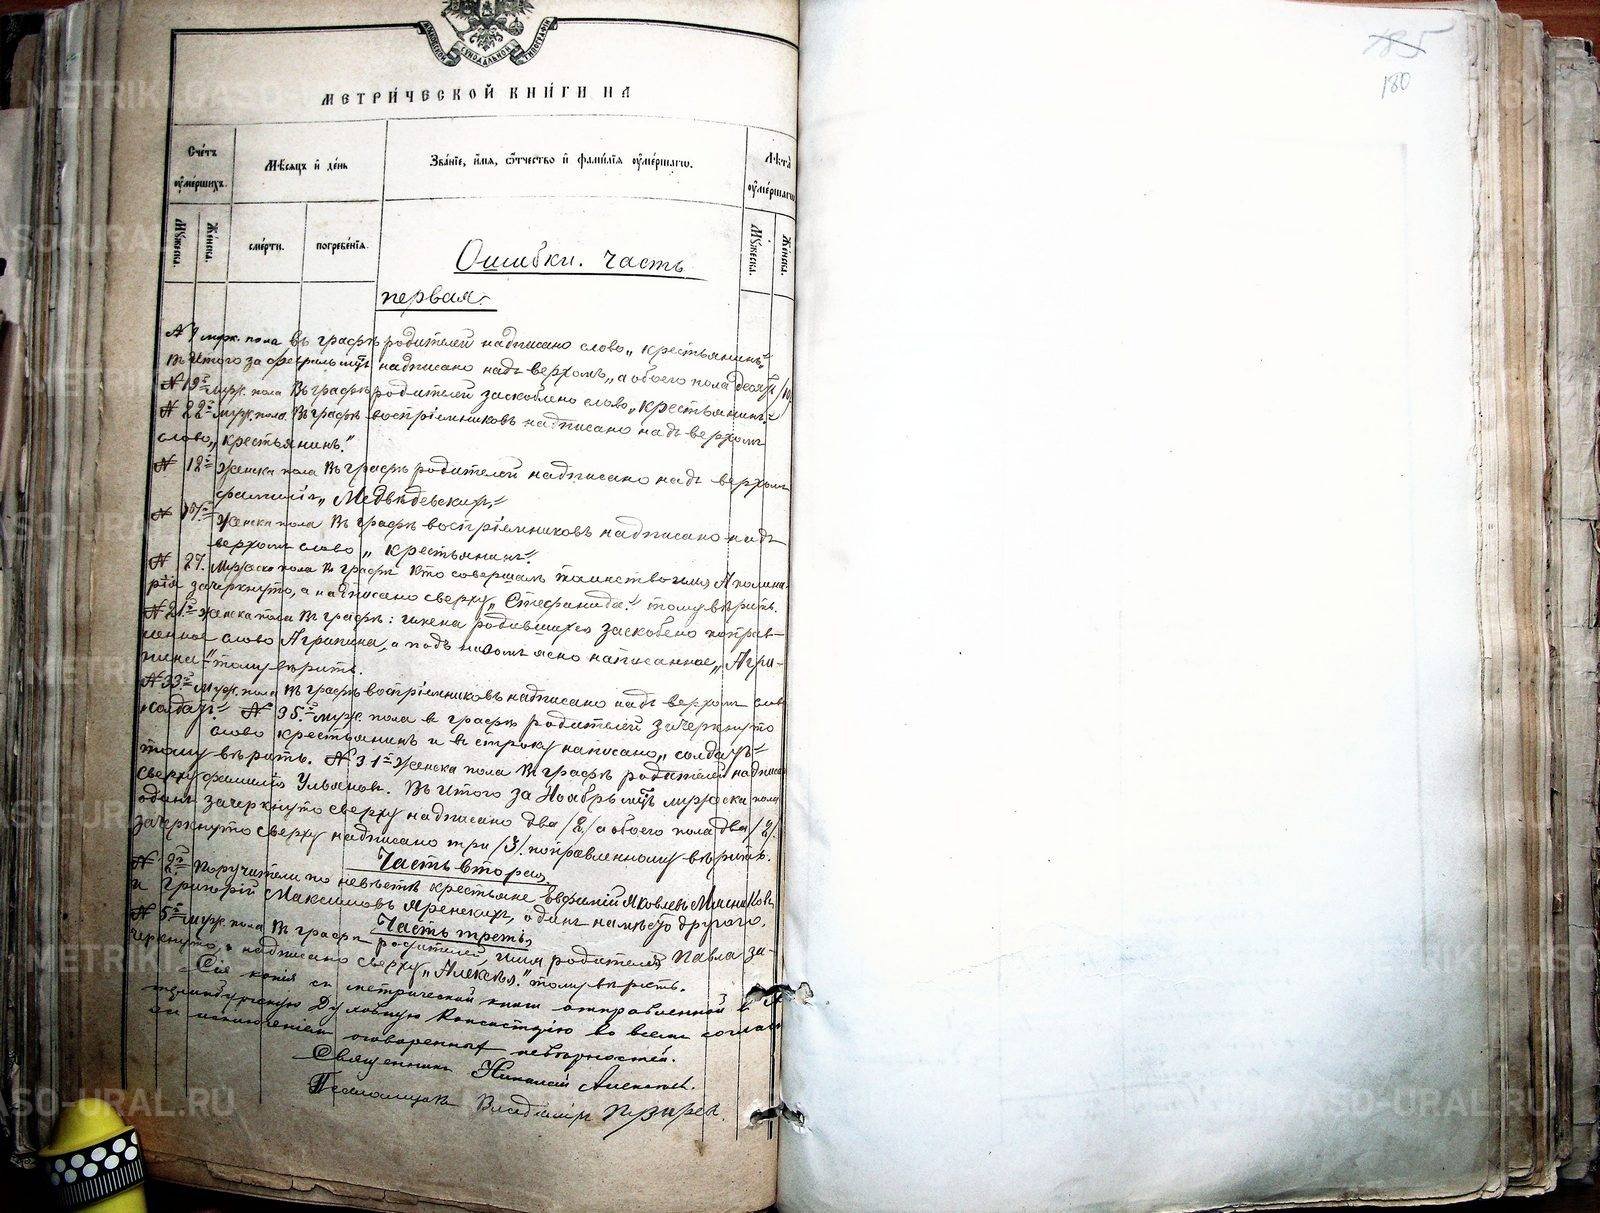 МОСКОВСКОЙ СѴНОДАЛЬНОЙ ТИПОГРАФІИ
МЕТРИ́ЧЕСКОЙ КНИ́ГИ НА
Сче́тъ ᲂу҆ме́ршихъ.
Мѣ́сяцъ и҆ де́нь
Зва́нїе, и҆́мя, ѻ҆́тчество и҆ фами́лїѧ ᲂу҆ме́ршагѡ.
Лѣ́та ᲂу҆ме́ршагѡ
Мꙋжеска.
Же́нска.
сме́рти.
погребе́нїѧ.
Мꙋжеска.
Же́нска.
185
180
Ошибки. Часть
первая.
№ 9 муж. пола въ графѣ родителей надписано слово „крестьянинъ"
въ Итого за февраль мцъ надписано надъ верхомъ „а обоего пола десять /10/
№ 19й муж. пола Въ графѣ родителей заскоблено слово „крестьянинъ"
№ 22й муж. пола Въ графѣ воспріемниковъ надписано надъ верхомъ
слово „крестьянинъ."
№ 12й женска пола Въ графѣ родителей надписано надъ верхомъ
фамилія „Медвѣдевскихъ"
№ 17й женска пола Въ графѣ воспріемниковъ надписано надъ
верхомъ слово „крестьянинъ"
№ 27. Мужеско пола Въ графѣ кто совершалъ таинство имя Аполина-
рія зачеркнуто, а надписано сверху „Стефанида" тому вѣрить.
№ 21й женска пола Въ графѣ: имена родившихся заскоблено поправ-
ленное слово Агрипина, а подъ низомъ ясно написанное „Агри-
пина" тому вѣрить.
№ 33й муж. пола Въ графѣ воспріемниковъ надписано надъ верхомъ слов
„солдатъ" № 35й муж. пола в графѣ родителей зачеркнуто
слово крестьянинъ и в строку написано „солдатъ"
тому вѣрить. № 31й женска пола Въ графѣ родителей надписа
сверху фамилія Ульяновъ. Въ Итого за Ноябрь мцъ мужеска пола
одинъ зачеркнуто сверху надписано два /2/ а обоего пола два /2/
зачеркнуто сверху надписано три /3/. поправленному вѣрить.
Часть вторая
№ 2й Поручители по невѣстѣ крестьяне Евфимій Яковлевъ Мясников
и Григорій Максимовъ Яренскихъ, одинъ намѣсто другого.
Часть третья
№ 5й муж. пола Въ графѣ родителей, имя родителя Павла за-
черкнуто, надписано сверху „Алексѣя". тому вѣрить.
Сія копія съ метрической книги отправленной в Ека
теринбургскую Духовную Консисторію во всемъ соглас
за исключеніемъ оговоренныхъ невѣрностей.
Священникъ Николай
Псаломщикъ Владиміръ
METRIKI.GASO-URAL.RU